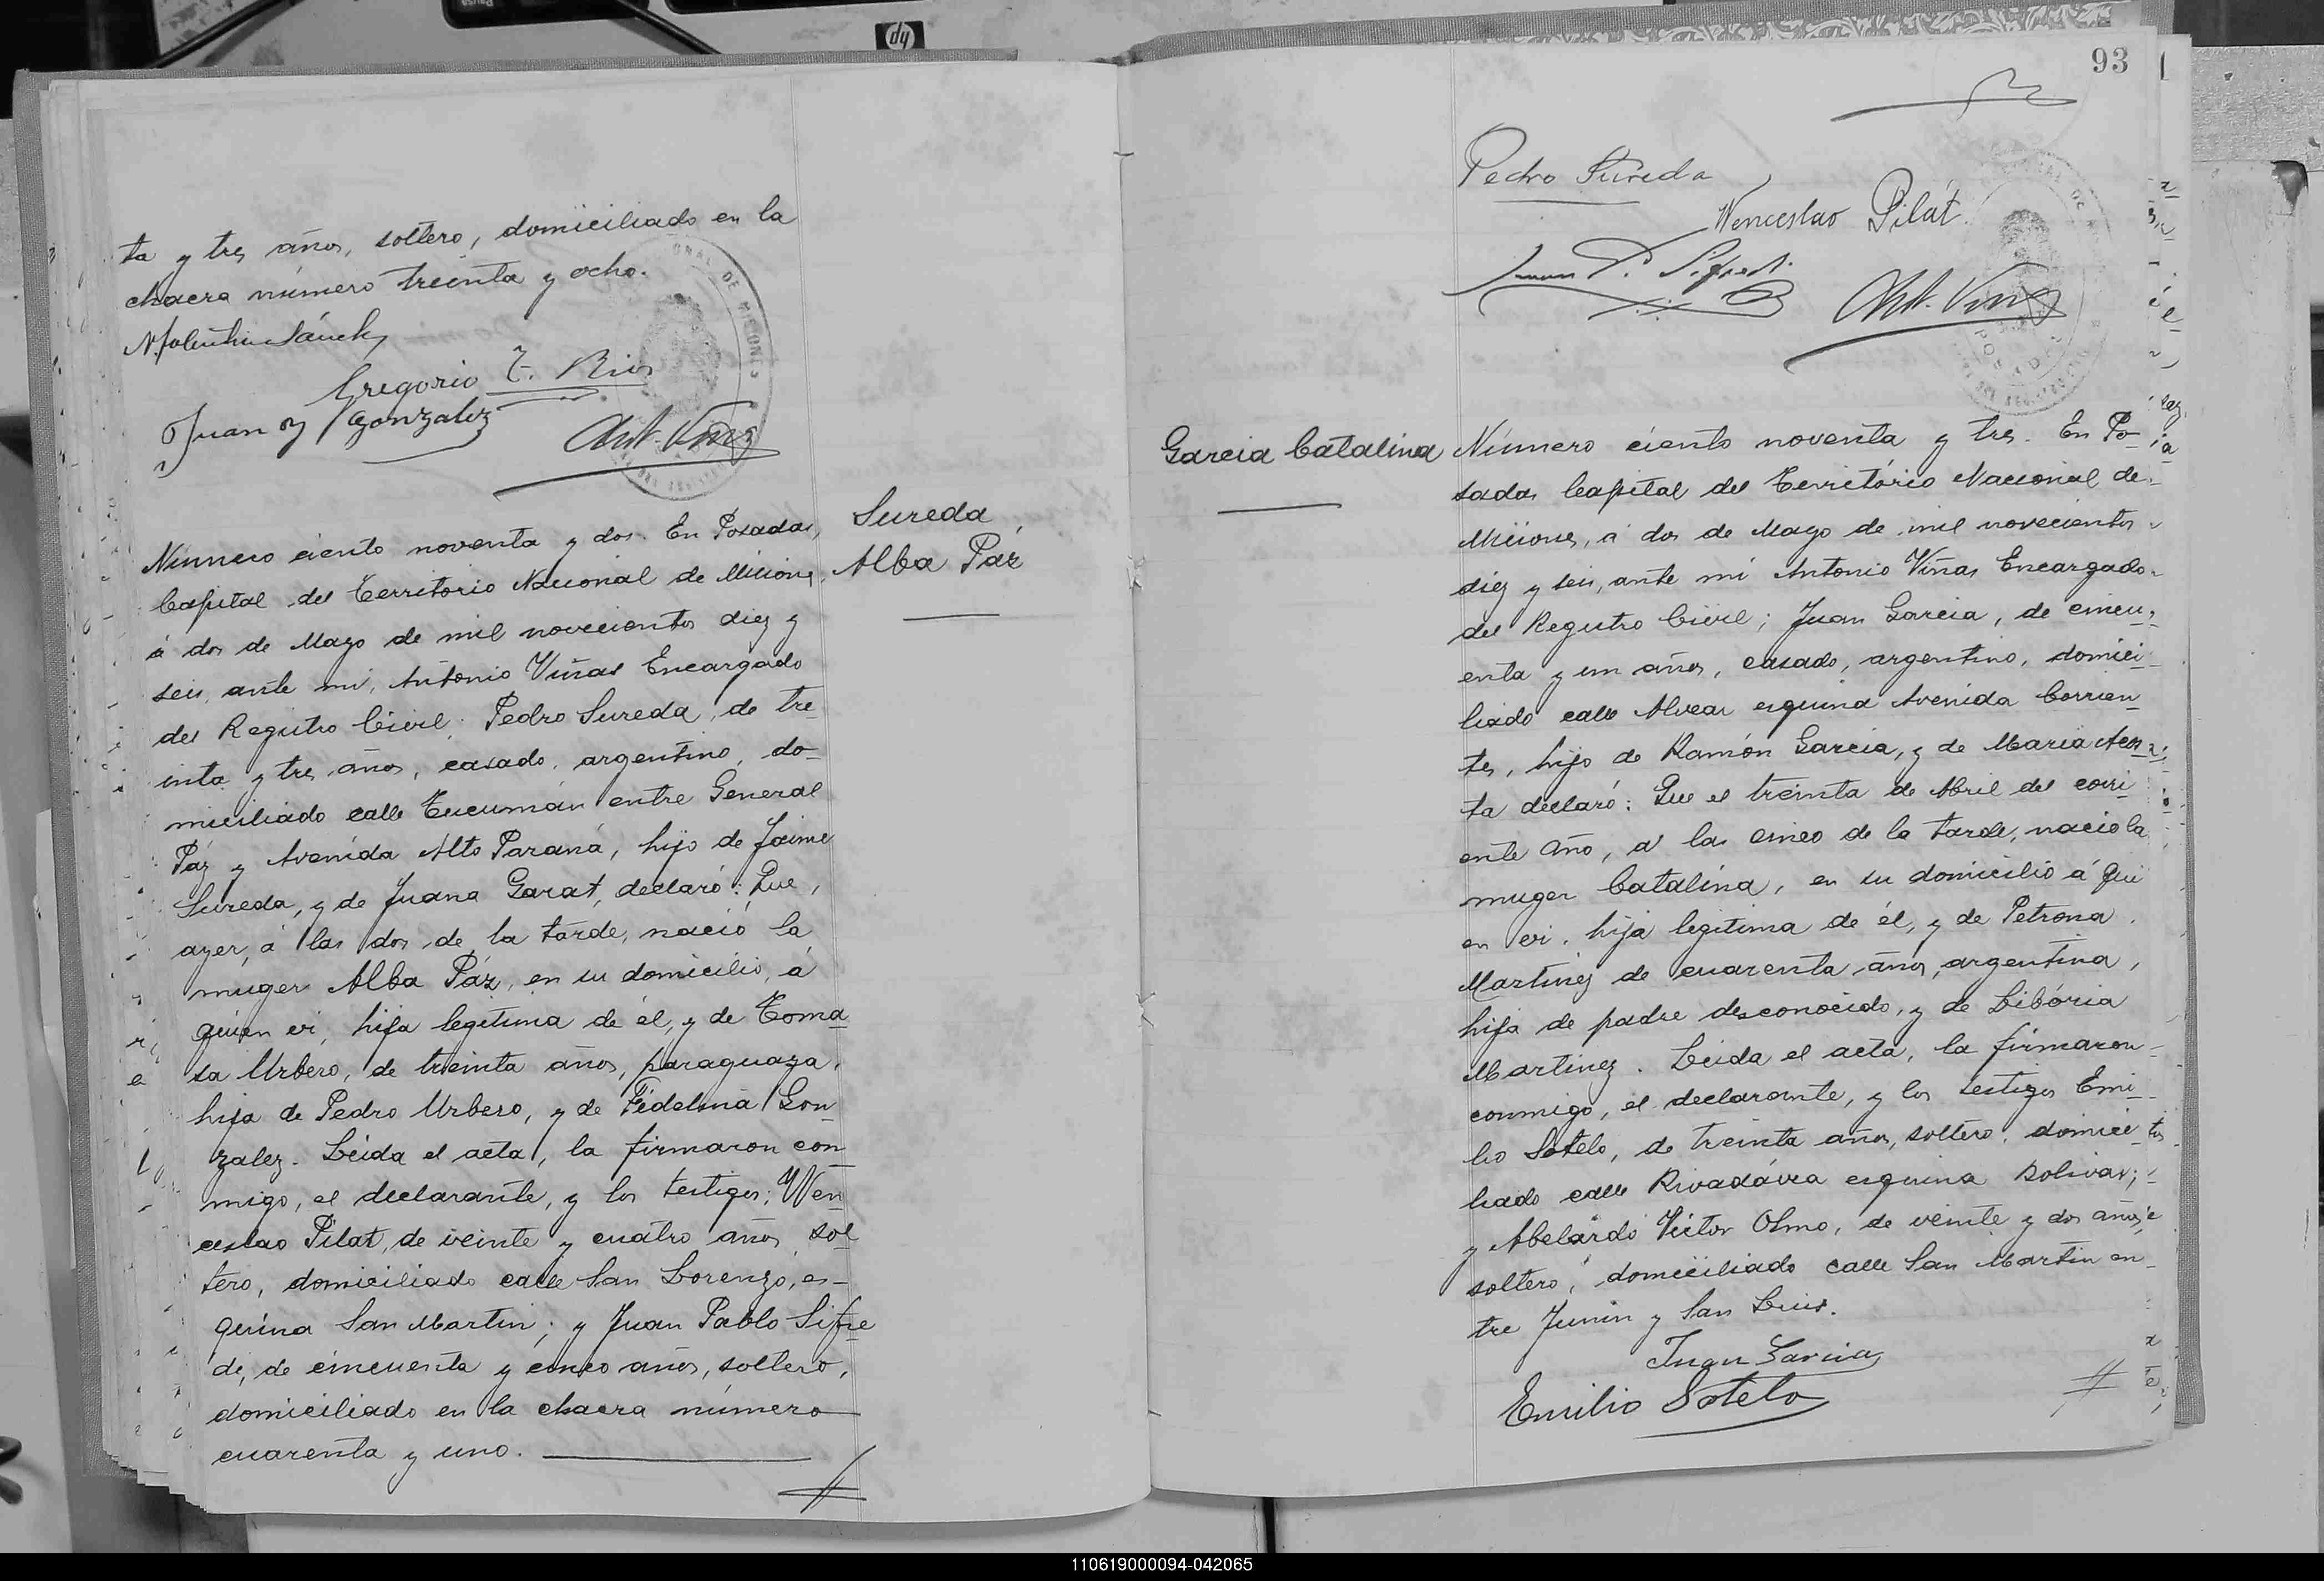 ta y tres años, soltero, domiciliado en la
chacra número treinta y ocho.
Gregorio T. Rios
Juan Gonzalez
Ant. Viñas
Número ciento noventa y dos. En Posadas,
Capital del Territorio Nacional de Misiones,
á dos de Mayo de mil novecientos diez y
seis, ante mi, Antonio Viñas Encargado
del Registro Civil; Pedro Sureda, de tre
inta y tres años, casado, argentino, do-
miciliado calle Tucumán entre General
Páz y Avenida Alto Paraná, hijo de Jaime
Sureda, y de Juana Garat, declaró: Que,
ayer, á las dos de la tarde, nació la
muger Alba Páz, en su domicilio, á
quien vi, hija legitima de él, y de Toma
sa Urbero, de treinta años, paraguaya,
hija de Pedro Urbero, y de Fidelina Gon
zalez. Leida el acta, la firmaron con
migo, el declarante, y los testigos; Wen
ceslao Pilat, de veinte y cuatro años, sol
tero, domiciliado calle San Lorenzo, es-
quina San Martin; y Juan Pablo Sifre
di, de cincuenta y cinco años, soltero,
domiciliado en la chacra número
cuarenta y uno.
Sureda
Alba Páz
93
Pedro Sureda
Wenceslao Pilát
Juan P. Sifredi
Ant. Viñas
Garcia Catalina
Número ciento noventa y tres. En Po-
sadas Capital del Territorio Nacional de
Misiones, á dos de Mayo de mil novecientos
diez y seis, ante mi Antonio Viñas Encargado
del Registro Civil; Juan Garcia, de cincu
enta y un años, casado, argentino, domici
liado calle Alvear esquina Avenida Corrien
tes, hijo de Ramón Garcia, y de Maria Acos
ta declaró: Que el treinta de Abril del corri
ente año, á las cinco de la tarde, nació la
muger Catalina, en su domicilio á qui
en vi, hija legitima de él, y de Petrona
Martinez de cuarenta años, argentina,
hija de padre desconocido, y de Libória
Martinez. Leida el acta, la firmaron
conmigo, el declarante, y los testigos Emi
lio Sotelo, de treinta años, soltero, domici
liado calle Rivadávia esquina Bolivar;
y Abelardo Victor Olmo, de veinte y dos años,
soltero, domiciliado calle San Martin en
tre Junin y San Luis.
Juan Garcia
Emilio Sotelo
110619000094-042065